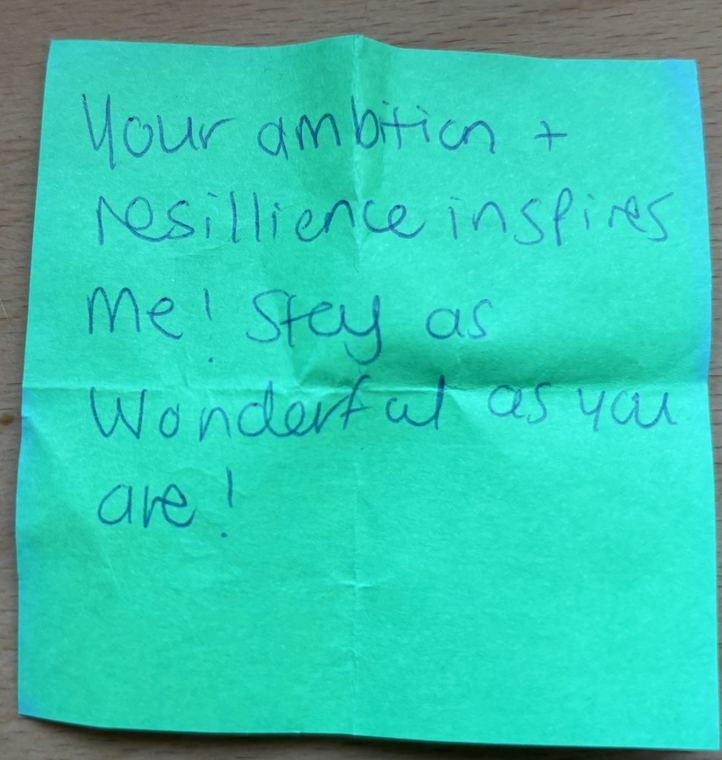 Your ambition +
resillience inspires
me! Stay as
Wonderful as you
are!